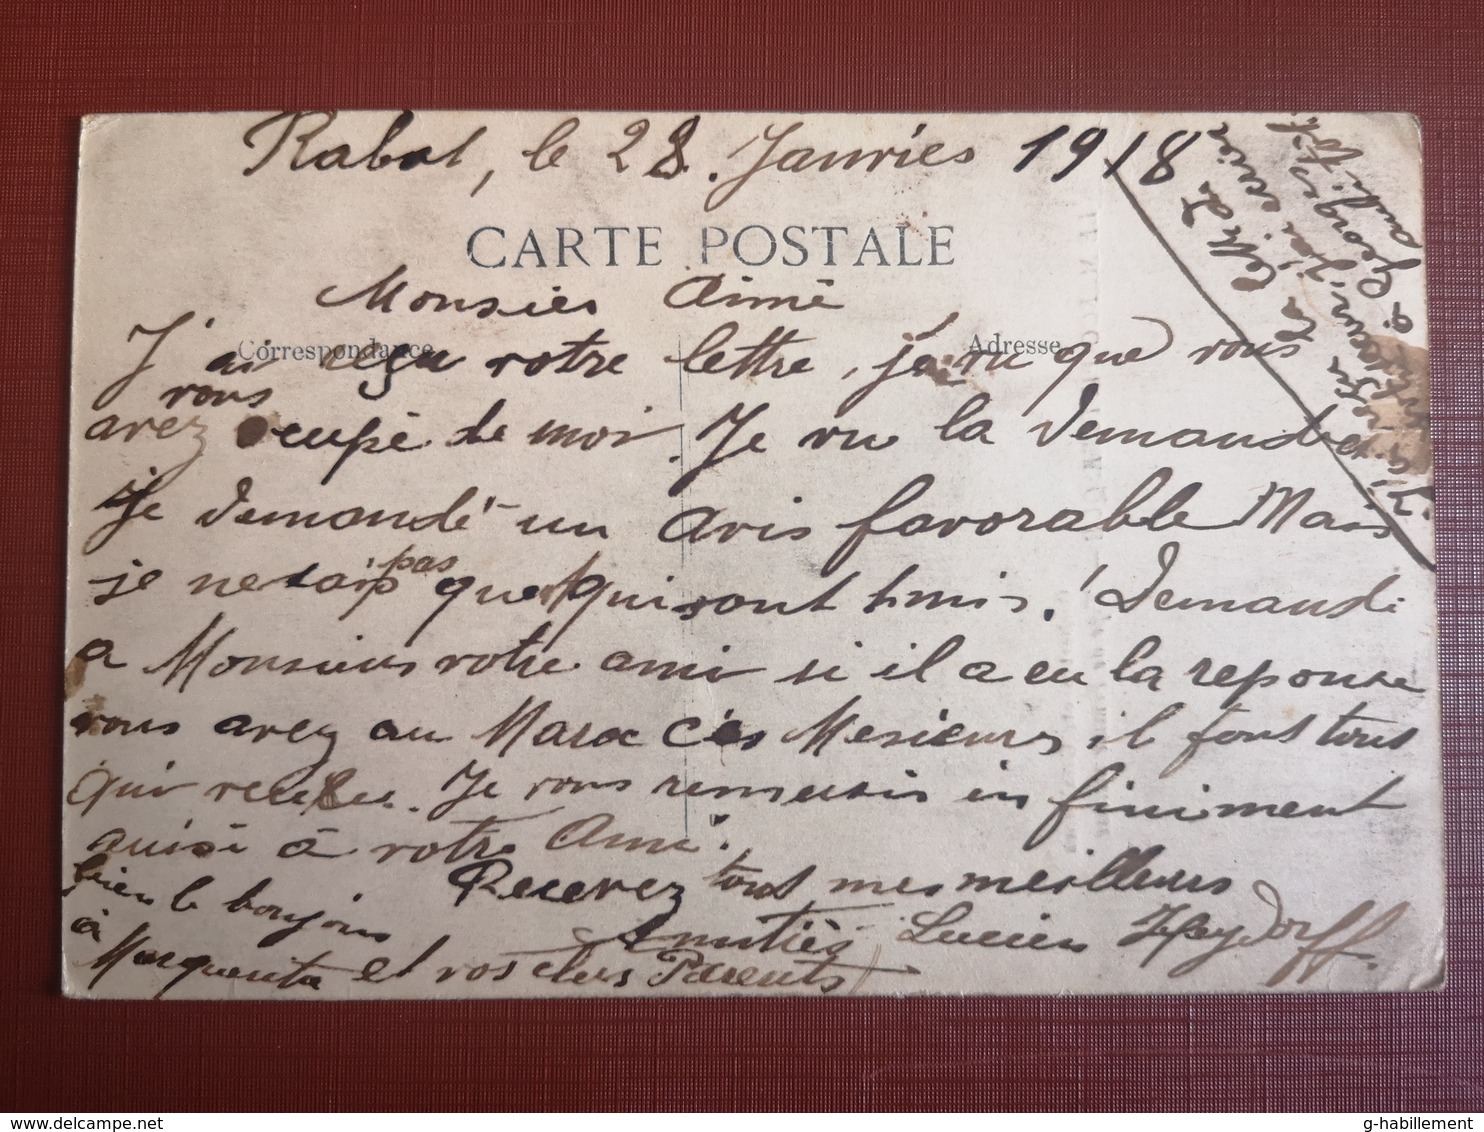 Rabat, le 28. Janvries 1918
CARTE POSTALE
Monsies Aimé
Correspondance
Adresse
J'ai reçu votre lettre, j'ai vu que vous
vous
avez ocupé de moi. Je vu la demande
Je demandé un avis favorable Mais
pas
je ne sais que qui sont
Demandé
a Monsieurs votre ami si il a eu la reponse
vous avez au Maroc ces Mesieurs il font tous
qui
Je vous remersis in finiment
ausi à votre Ami.
Recevez tous mes meilleurs
Amitiés Lucien Heydorff.
bien le bonjour
à
Marguerita et vos chers Parents
à Georges